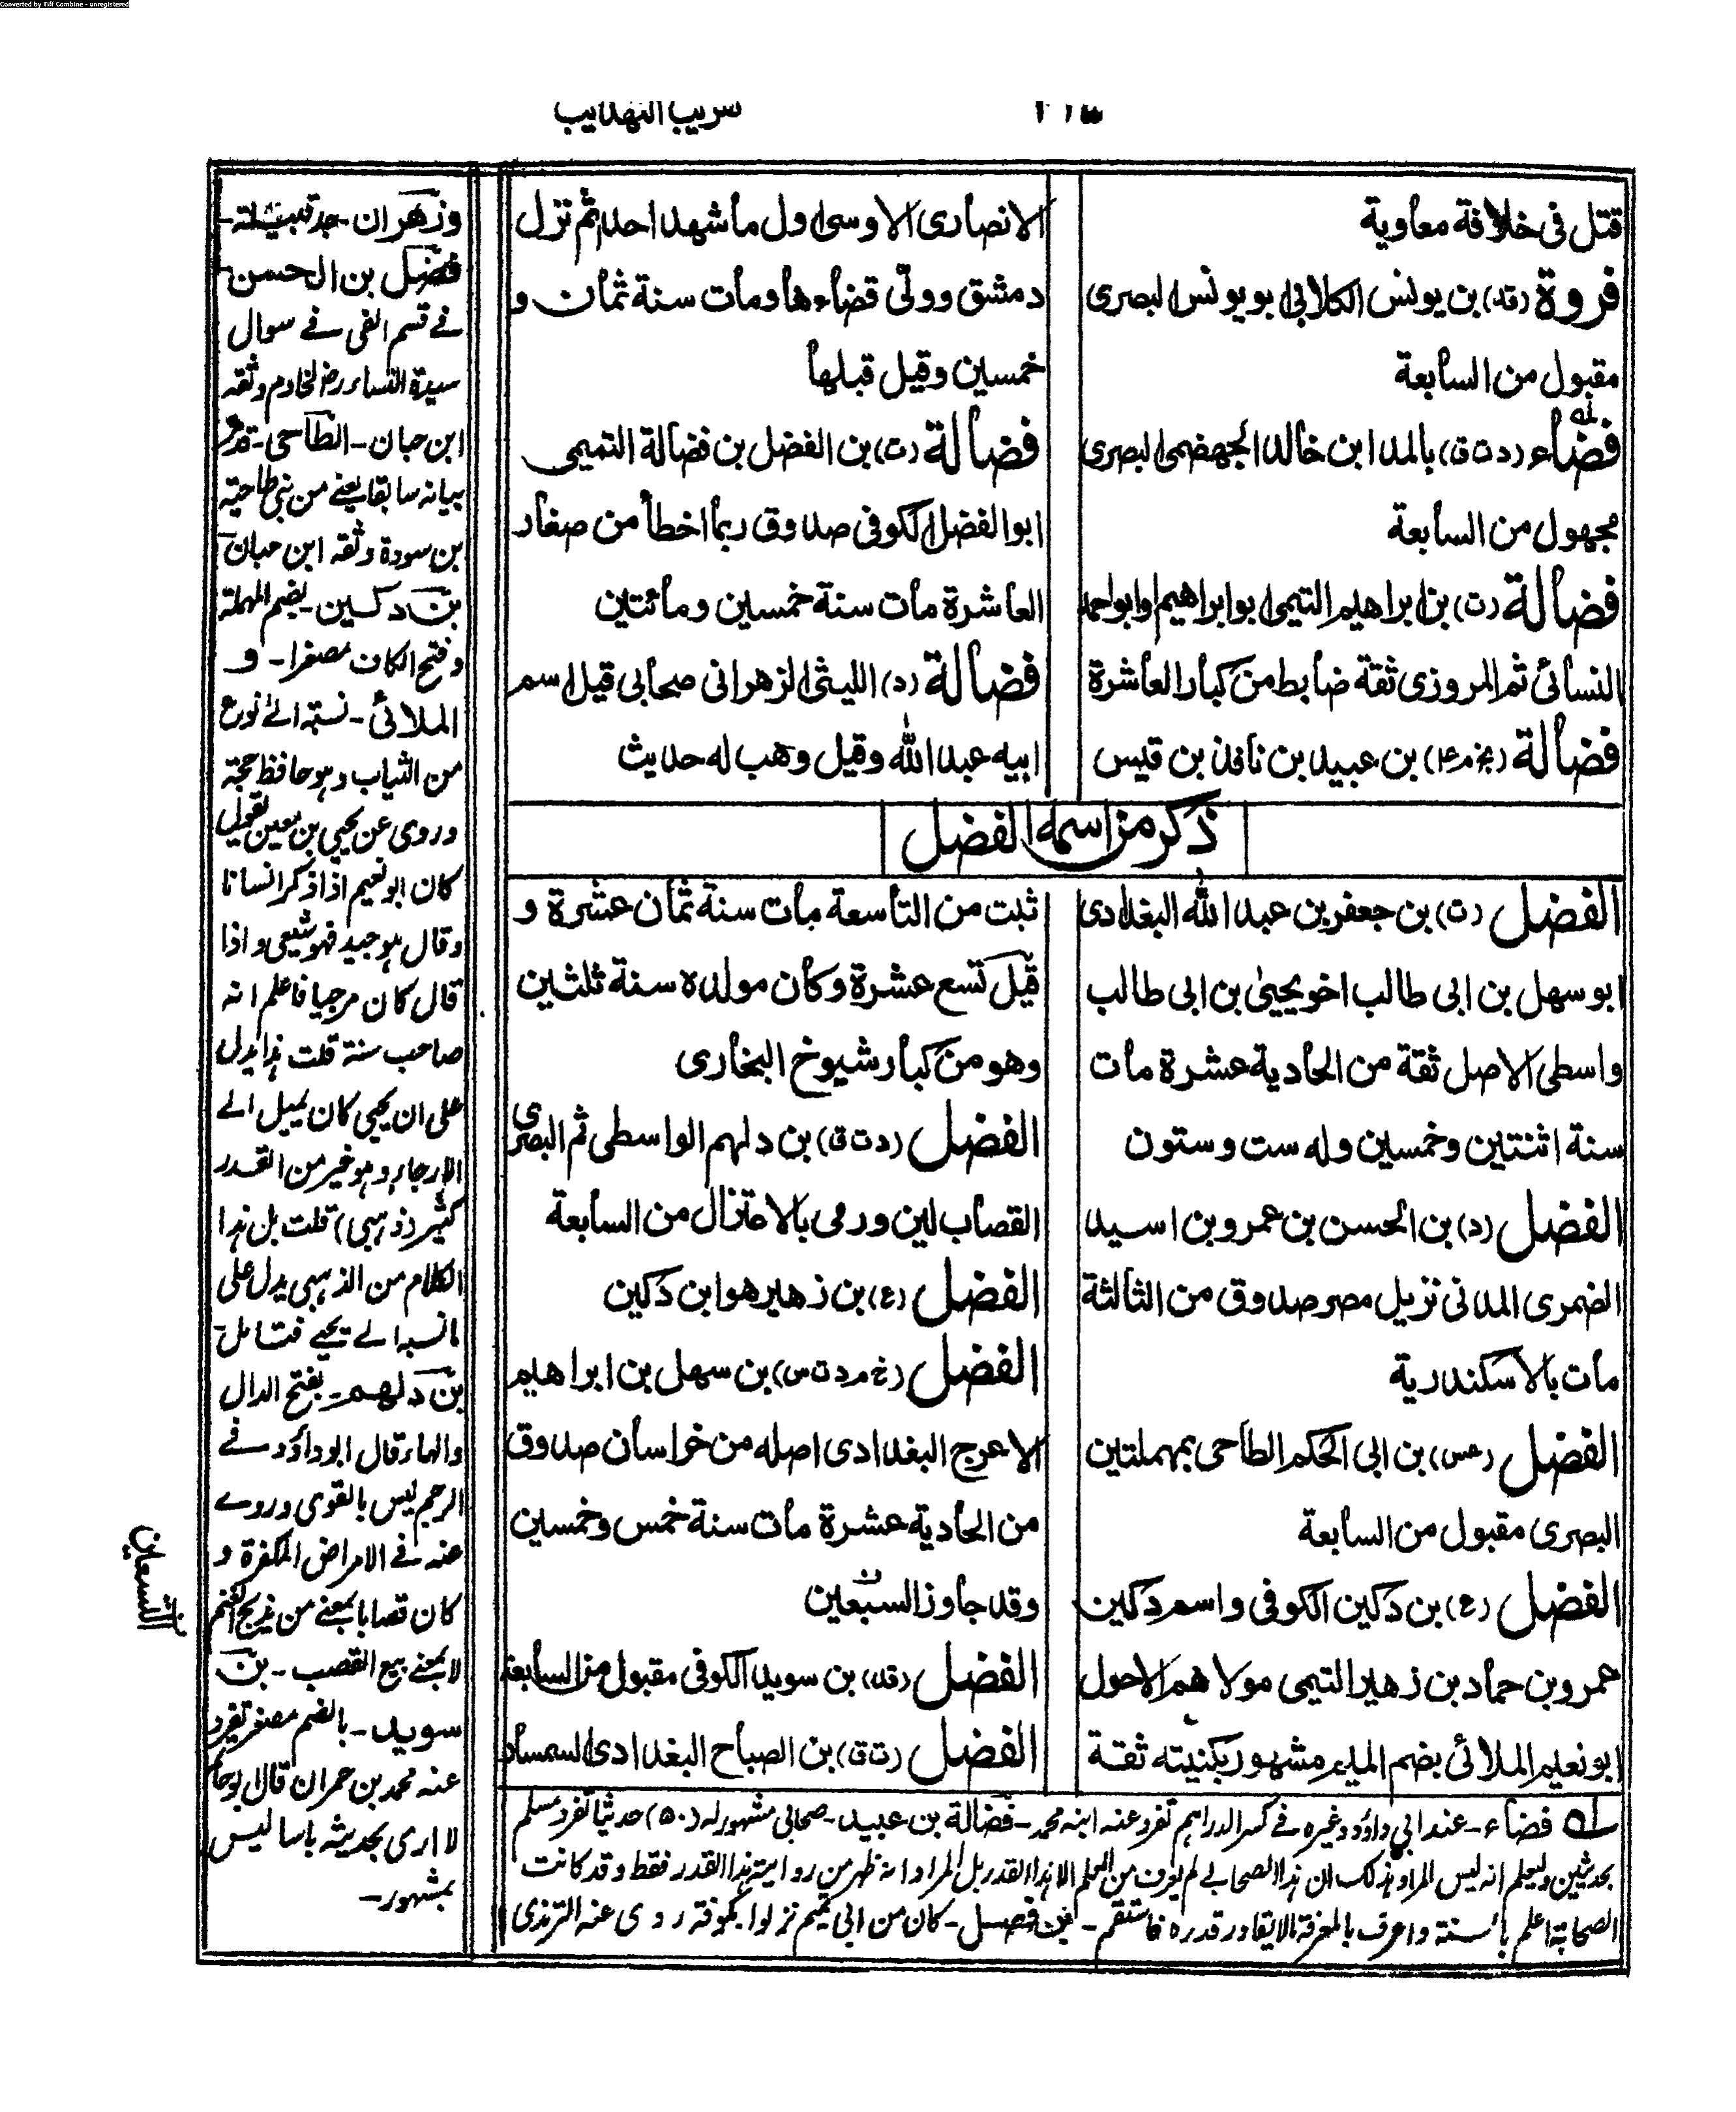 Converted by Tiff Combine - unregistered
قتل فى خلافة معاوية
فروة (قد) بن يونس الكلابى ابو يونس البصرى
مقبول من السابعة
فضاء (د ت ق) بالمد ابن خالد الجهضمى البصرى
مجهول من السابعة
فضالة (ت) بن ابراهيم التيمى ابو ابراهيم او ابو احمد
النسائى ثم المروزى ثقة ضابط من كبار العاشرة
فضالة (بخ م ع۴) بن عبيد بن نافذ بن قيس
الانصارى الاوسى اول ما شهد احد ثم نزل
دمشق وولّى قضاءها ومات سنة ثمان و
خمسين وقيل قبلها
فضالة (ت) بن الفضل بن فضالة التميمى
ابو الفضل الكوفى صدوق ربما اخطأ من صغار
العاشرة مات سنة خمسين ومائتين
فضالة (د) الليثى الزهرانى صحابى قيل اسم
ابيه عبد الله وقيل وهب له حديث
ذكر من اسمه الفضل
الفضل (ت) بن جعفر بن عبد الله البغدادى
ابو سهل بن ابى طالب اخو يحيى بن ابى طالب
واسطى الاصل ثقة من الحادية عشرة مات
سنة اثنتين وخمسين وله ست وستون
الفضل (د) بن الحسن بن عمرو بن اسيد
الضمرى المدنى نزيل مصر صدوق من الثالثة
مات بالاسكندرية
الفضل (عس) بن ابى الحكم الطاحى بمهملتين
البصرى مقبول من السابعة
الفضل (ع) بن دكين الكوفى واسم دكين
عمرو بن حماد بن زهير التيمى مولاهم الاحول
ابو نعيم الملائى بضم الميم مشهور بكنيته ثقة
ثبت من التاسعة مات سنة ثمان عشرة و
قيل تسع عشرة وكان مولده سنة ثلثين
وهو من كبار شيوخ البخارى
الفضل (د ت ق) بن دلهم الواسطى ثم البصرى
القصاب لين ورمى بالاعتزال من السابعة
الفضل (ع) بن زهير هو ابن دكين
الفضل (خ م د ت س) بن سهل بن ابراهيم
الاعرج البغدادى اصله من خراسان صدوق
من الحادية عشرة مات سنة خمس وخمسين
وقد جاوز السبعين
الفضل (قد) بن سويد الكوفى مقبول من السابعة
الفضل (ت ق) بن الصباح البغدادى السمسار
وزهران - جد قبيلة -
فضل بن الحسن
فے قسم الفى فے سوال
سيدة النساء رض الخادم وثقه
ابن حبان - الطاحى - قد مر
بيانه سابقا يعنے من بنى طاحية
بن سودة وثقه ابن حبان
بن دكين - بضم المهملة
وفتح الكاف مصغرا - و
الملائى - نسبة الى نوع
من الثياب وهو حافظ حجة
وروى عن يحيى بن معين يقول
كان ابو نعيم اذا ذكر انسانا
وقال هو جيد فهو شيعى واذا
قال كان مرجيا فاعلم انه
صاحب سنة قلت هذا يدل
على ان يحيى كان يميل الے
الارجاء وهو خير من القدر
كثير (ذهبى) قلت بل هذا
الكلام من الذهبى يدل على
ما نسبه الے يحيے فتأمل
بن دلهم - بفتح الدال
والهاء قال ابو داؤد فے
الرجم ليس بالقوى وروے
عنه فے الامراض المكفرة و
كان قصابا بمعنے من يذبح الغنم
لا بمعنے بيع القصب - بن
سويد - بالضم مصغر تفرد
عنه محمد بن حمران قال ابو حاتم
لا ارى بحديثه باسا ليس
بمشهور -
التسعين
فضاء - عند ابى داؤد وغيره فے كسر الدراهم تفرد عنه ابنه محمد - فضالة بن عبيد - صحابى مشهور له (٥٠) حديثا تفرد مسلم
بحديثين وليعلم انه ليس المراد بذلك ان هذا الصحابے لم يعرف من العلم الا هذا القدر بل المراد انه ظهر من روايته هذا القدر فقط وقد كانت
الصحابة اعلم بالسنة واعرف بالمعرفة فاستقم - بن فضل - كان من ابى تميم نزلوا بكوفة روى عنه الترمذى